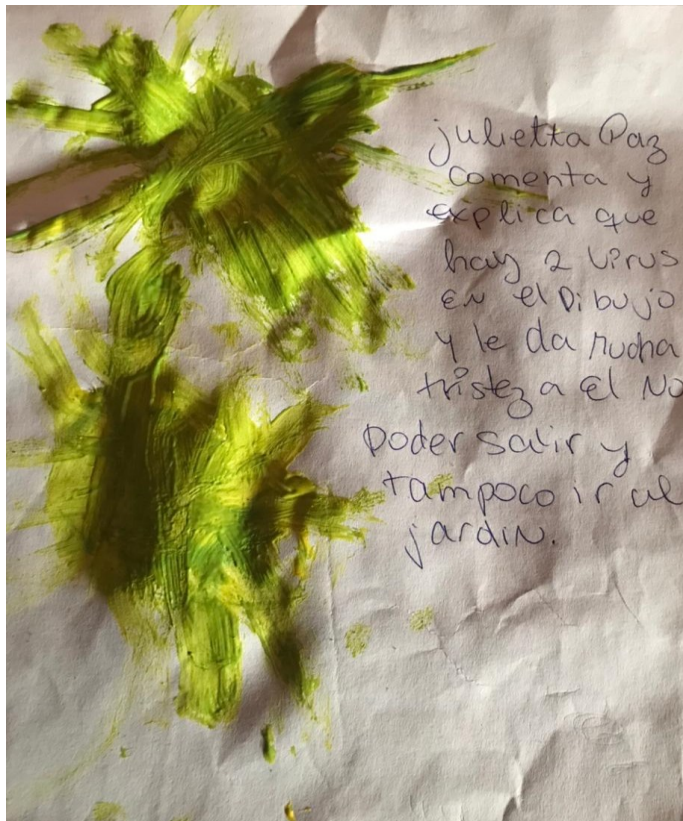 julietta Paz
comenta y
explica que
hay 2 virus
en el Dibujo
y le da mucha
tristeza el No
poder salir y
tampoco ir al
jardin.